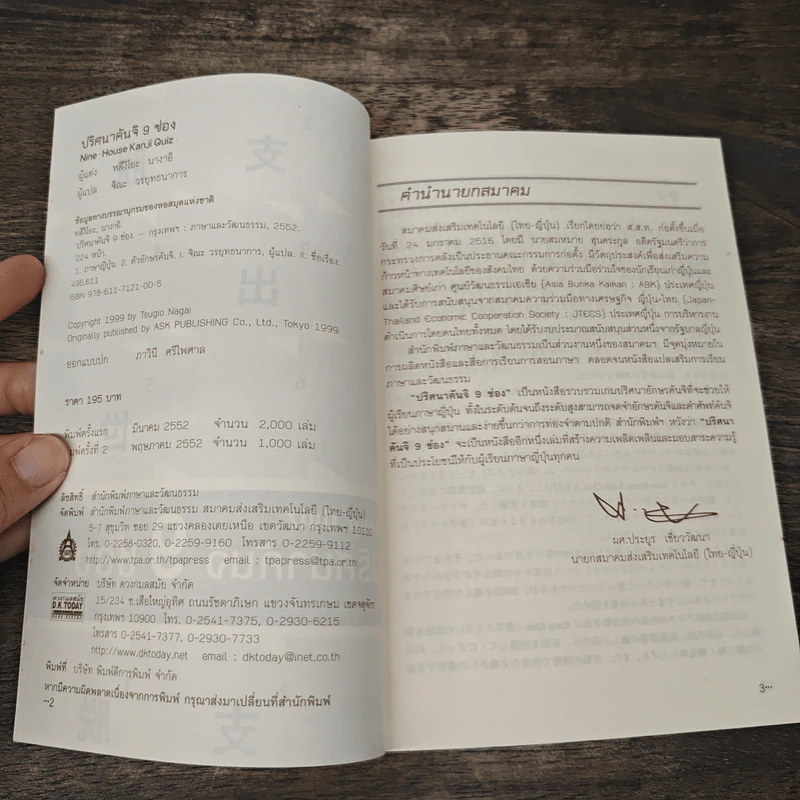 ปริศนาคันจิ 9 ช่อง
Nine House Kanji Quiz
ผู้แต่ง ทสึงิโอะ นางาอิ
ผู้แปล จิณะ วรยุทธนาการ
ข้อมูลทางบรรณานุกรมของหอสมุดแห่งชาติ
ทสึงิโอะ, นางาอิ.
ปริศนาคันจิ 9 ช่อง. -- กรุงเทพฯ : ภาษาและวัฒนธรรม, 2552.
224 หน้า.
1. ภาษาญี่ปุ่น. 2. ตัวอักษรคันจิ. I. จิณะ วรยุทธนาการ, ผู้แปล. II. ชื่อเรื่อง.
495.611
ISBN 978-611-7121-00-5
Copyright 1999 by Tsugio Nagai
Originally published by ASK PUBLISHING Co., Ltd., Tokyo 1999
ออกแบบปก ภาวินี ศรีไพศาล
ราคา 195 บาท
พิมพ์ครั้งแรก มีนาคม 2552 จำนวน 2,000 เล่ม
พิมพ์ครั้งที่ 2 พฤษภาคม 2552 จำนวน 1,000 เล่ม
ลิขสิทธิ์ สำนักพิมพ์ภาษาและวัฒนธรรม
จัดพิมพ์ สำนักพิมพ์ภาษาและวัฒนธรรม สมาคมส่งเสริมเทคโนโลยี (ไทย-ญี่ปุ่น)
5-7 สุขุมวิท ซอย 29 แขวงคลองเตยเหนือ เขตวัฒนา กรุงเทพฯ 10110
โทร. 0-2258-0320, 0-2259-9160 โทรสาร 0-2259-9112
http://www.tpa.or.th/tpapress email : tpapress@tpa.or.th
จัดจำหน่าย บริษัท ดวงกมลสมัย จำกัด
ดวงกมลสมัย
D.K.TODAY
15/234 ซ.เสือใหญ่อุทิศ ถนนรัชดาภิเษก แขวงจันทรเกษม เขตจตุจักร
กรุงเทพฯ 10900 โทร. 0-2541-7375, 0-2930-6215
โทรสาร 0-2541-7377, 0-2930-7733
http://www.dktoday.net email : dktoday@inet.co.th
พิมพ์ที่ บริษัท พิมพ์ดีการพิมพ์ จำกัด
หากมีความผิดพลาดเนื่องจากการพิมพ์ กรุณาส่งมาเปลี่ยนที่สำนักพิมพ์
···2
คำนำนายกสมาคม
สมาคมส่งเสริมเทคโนโลยี (ไทย-ญี่ปุ่น) เรียกโดยย่อว่า ส.ส.ท. ก่อตั้งขึ้นเมื่อ
วันที่ 24 มกราคม 2516 โดยมี นายสมหมาย ฮุนตระกูล อดีตรัฐมนตรีว่าการ
กระทรวงการคลังเป็นประธานคณะกรรมการก่อตั้ง มีวัตถุประสงค์เพื่อส่งเสริมความ
ก้าวหน้าทางเทคโนโลยีของสังคมไทย ด้วยความร่วมมือร่วมใจของนักเรียนเก่าญี่ปุ่นและ
สมาคมศิษย์เก่า ศูนย์วัฒนธรรมเอเชีย (Asia Bunka Kaikan : ABK) ประเทศญี่ปุ่น
และได้รับการสนับสนุนจากสมาคมความร่วมมือทางเศรษฐกิจ ญี่ปุ่น-ไทย (Japan-
Thailand Economic Cooperation Society : JTECS) ประเทศญี่ปุ่น การบริหารงาน
ดำเนินการโดยคนไทยทั้งหมด โดยได้รับงบประมาณสนับสนุนส่วนหนึ่งจากรัฐบาลญี่ปุ่น
สำนักพิมพ์ภาษาและวัฒนธรรมเป็นส่วนงานหนึ่งของสมาคมฯ มีจุดมุ่งหมายใน
การผลิตหนังสือและสื่อการเรียนการสอนภาษา ตลอดจนหนังสือแปลเสริมการเรียน
ภาษาและวัฒนธรรม
"ปริศนาคันจิ 9 ช่อง" เป็นหนังสือรวบรวมเกมปริศนาอักษรคันจิที่จะช่วยให้
ผู้เรียนภาษาญี่ปุ่น ทั้งในระดับต้นจนถึงระดับสูงสามารถจดจำอักษรคันจิและคำศัพท์คันจิ
ได้อย่างสนุกสนานและง่ายขึ้นกว่าการท่องจำตามปกติ สำนักพิมพ์ฯ หวังว่า "ปริศนา
คันจิ 9 ช่อง" จะเป็นหนังสืออีกหนึ่งเล่มที่สร้างความเพลิดเพลินและมอบสาระความรู้
ที่เป็นประโยชน์ให้กับผู้เรียนภาษาญี่ปุ่นทุกคน
ผศ.ประยูร เชี่ยววัฒนา
นายกสมาคมส่งเสริมเทคโนโลยี (ไทย-ญี่ปุ่น)
3···